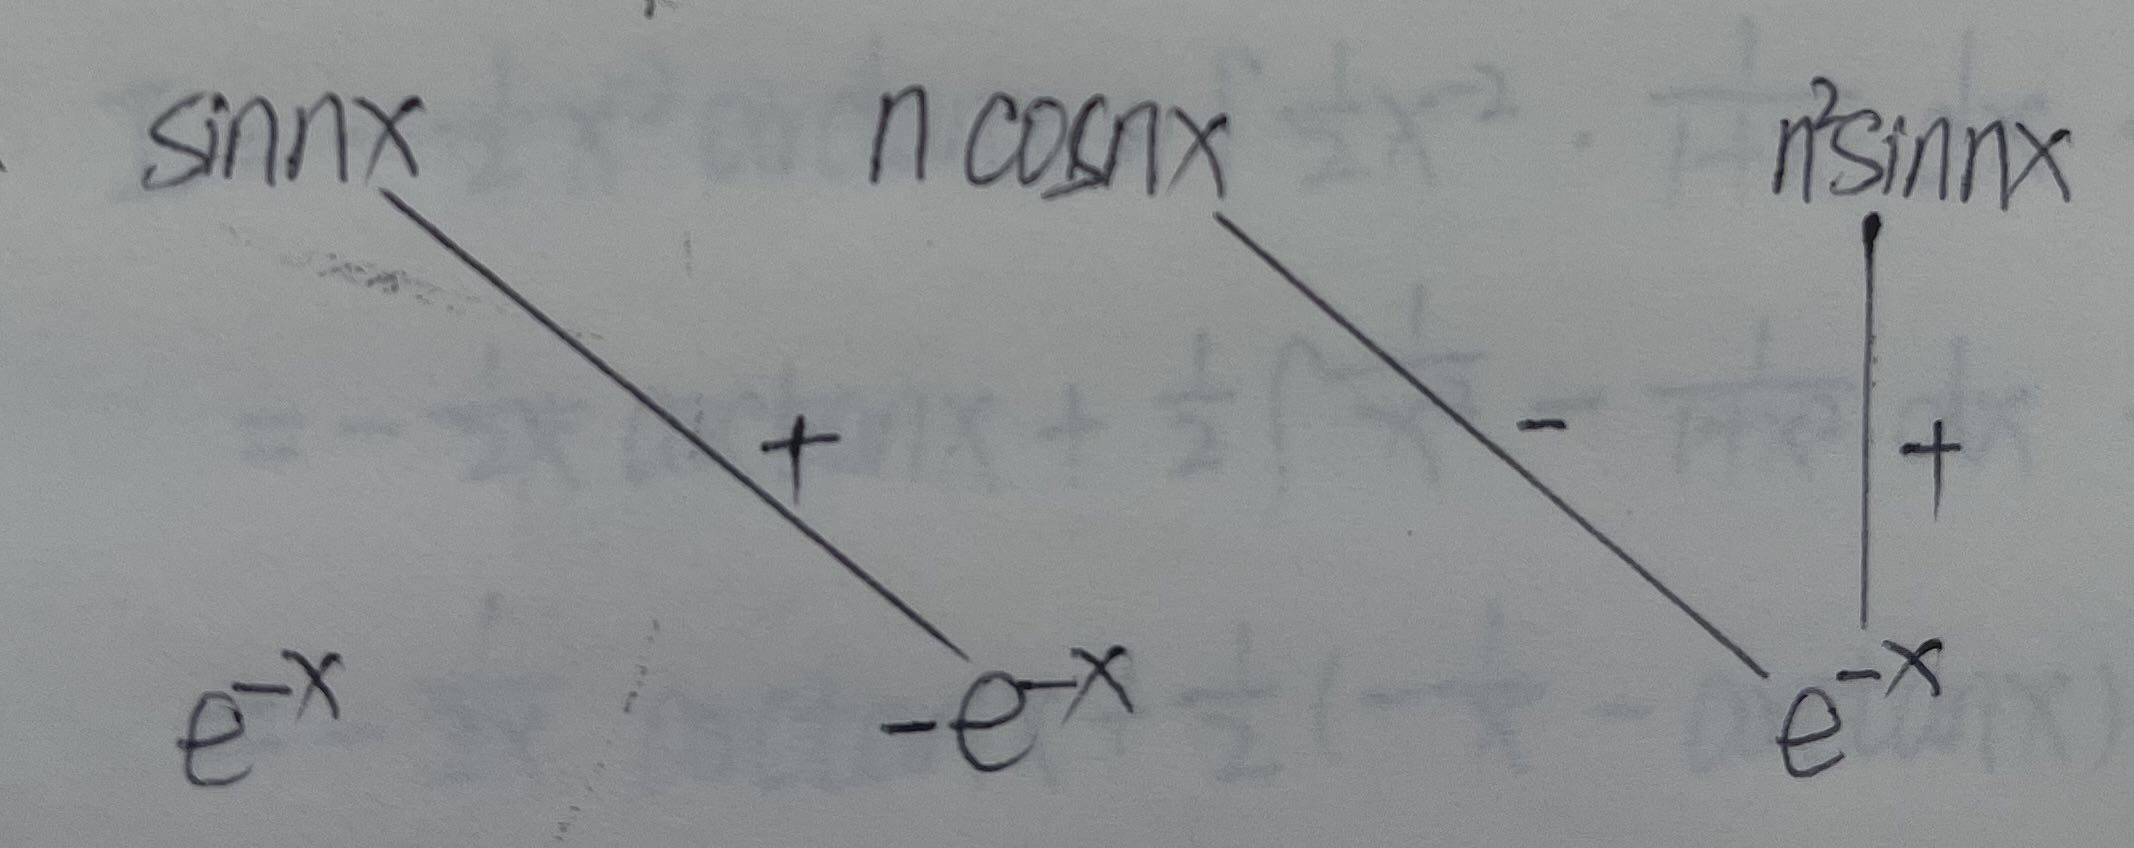 sinnx ncosnx n²sinnx
+ - +
e^-x -e^-x e^-x